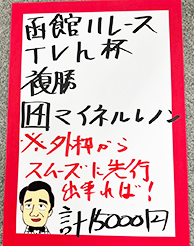 函館11レース
TVh杯
複勝
14 マイネルレノン
※外枠から
スムーズに先行
出来れば!
計15000円